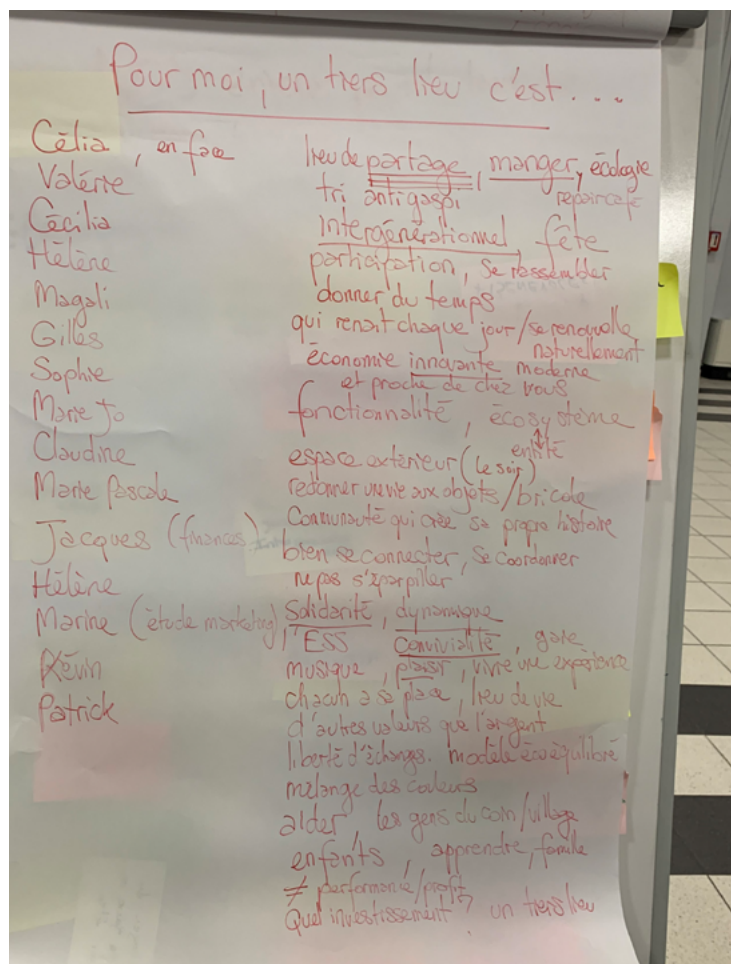 Pour moi, un tiers lieu c'est...
Célia, en face
Valérie
Cécilia
Hélène
Magali
Gilles
Sophie
Marie Jo
Claudine
Marie Pascale
Jacques (finances)
Hélène
Marine (étude marketing)
Kévin
Patrick
lieu de partage, manger, écologie
tri antigaspi, repaircafé
intergénérationnel, fête
participation, se rassembler
donner du temps
qui renait chaque jour/se renouvelle
naturellement
économie innovante moderne
et proche de chez vous
fonctionnalité, écosystème
↕
entité
espace extérieur (le soir)
redonner une vie aux objets/bricole
Communauté qui crée sa propre histoire
bien se connecter, se coordonner
ne pas s'éparpiller
Solidarité, dynamique
l'ESS Convivialité, gare
musique, plaisir, vivre une expérience
chacun a sa place, lieu de vie
d'autres valeurs que l'argent
liberté d'échanges. modèle écoéquilibré
mélange des couleurs
aider, les gens du coin/village
enfants, apprendre, famille
≠ performance/profit
Quel investissement? un tiers lieu